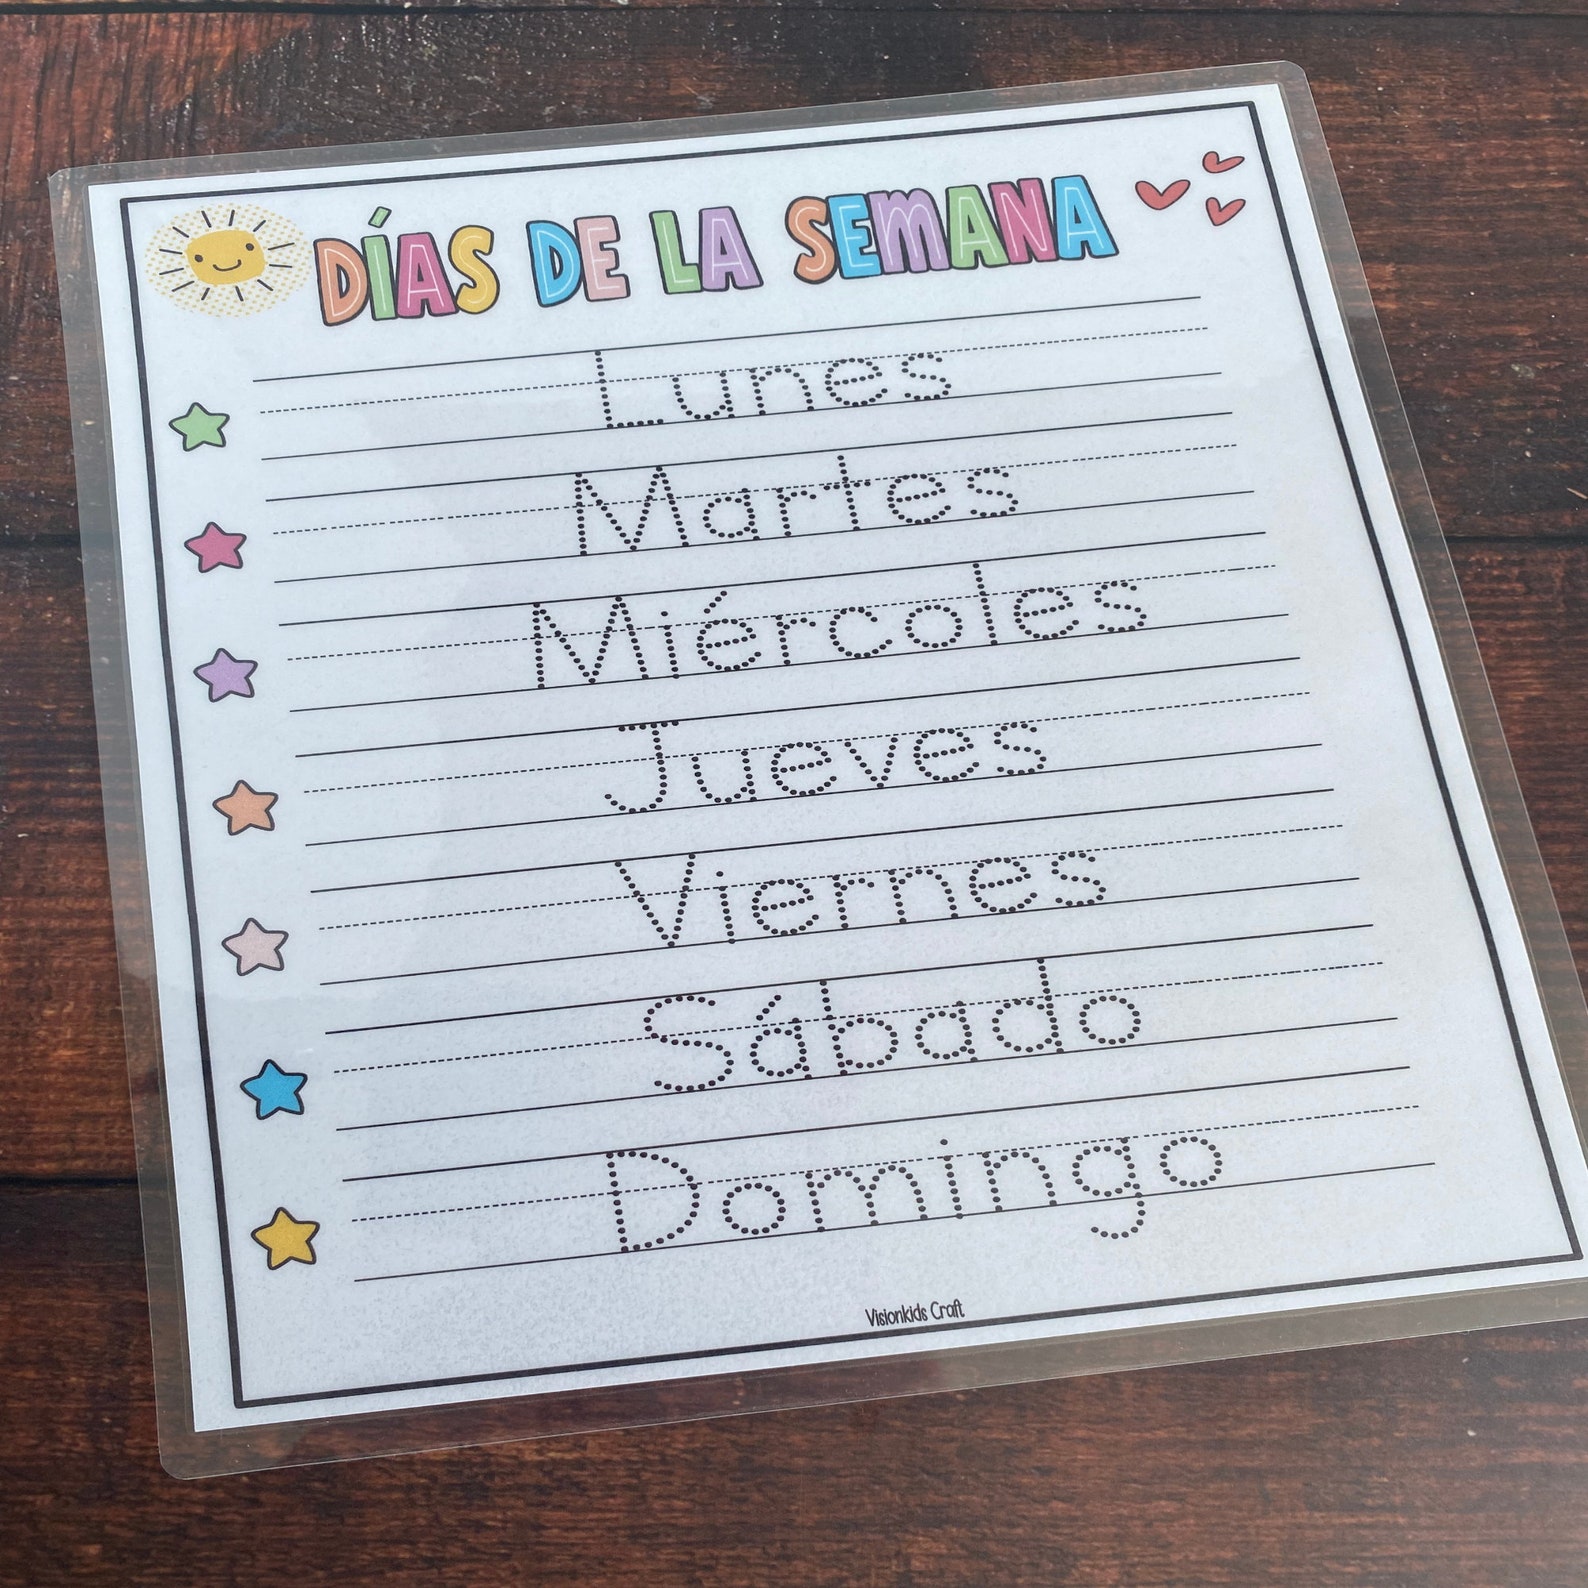 DÍAS DE LA SEMANA
Lunes
Martes
Miércoles
Jueves
Viernes
Sábado
Domingo
Visionkids Craft